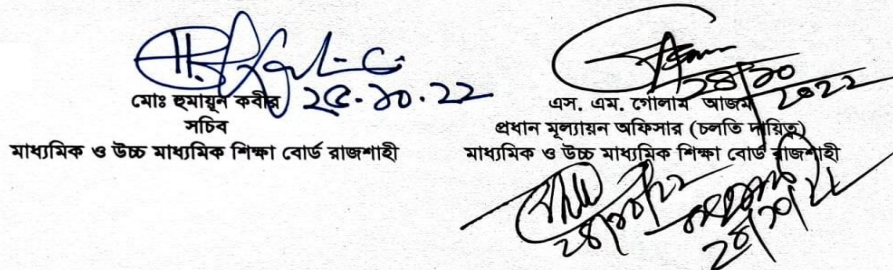 মোঃ হুমায়ুন কবীর ২৫.১০.২২
সচিব
মাধ্যমিক ও উচ্চ মাধ্যমিক শিক্ষা বোর্ড রাজশাহী
২৪/১০
২০২২
এস. এম. গোলাম আজম
প্রধান মূল্যায়ন অফিসার (চলতি দায়িত্ব)
মাধ্যমিক ও উচ্চ মাধ্যমিক শিক্ষা বোর্ড রাজশাহী
২৪/১০/২২